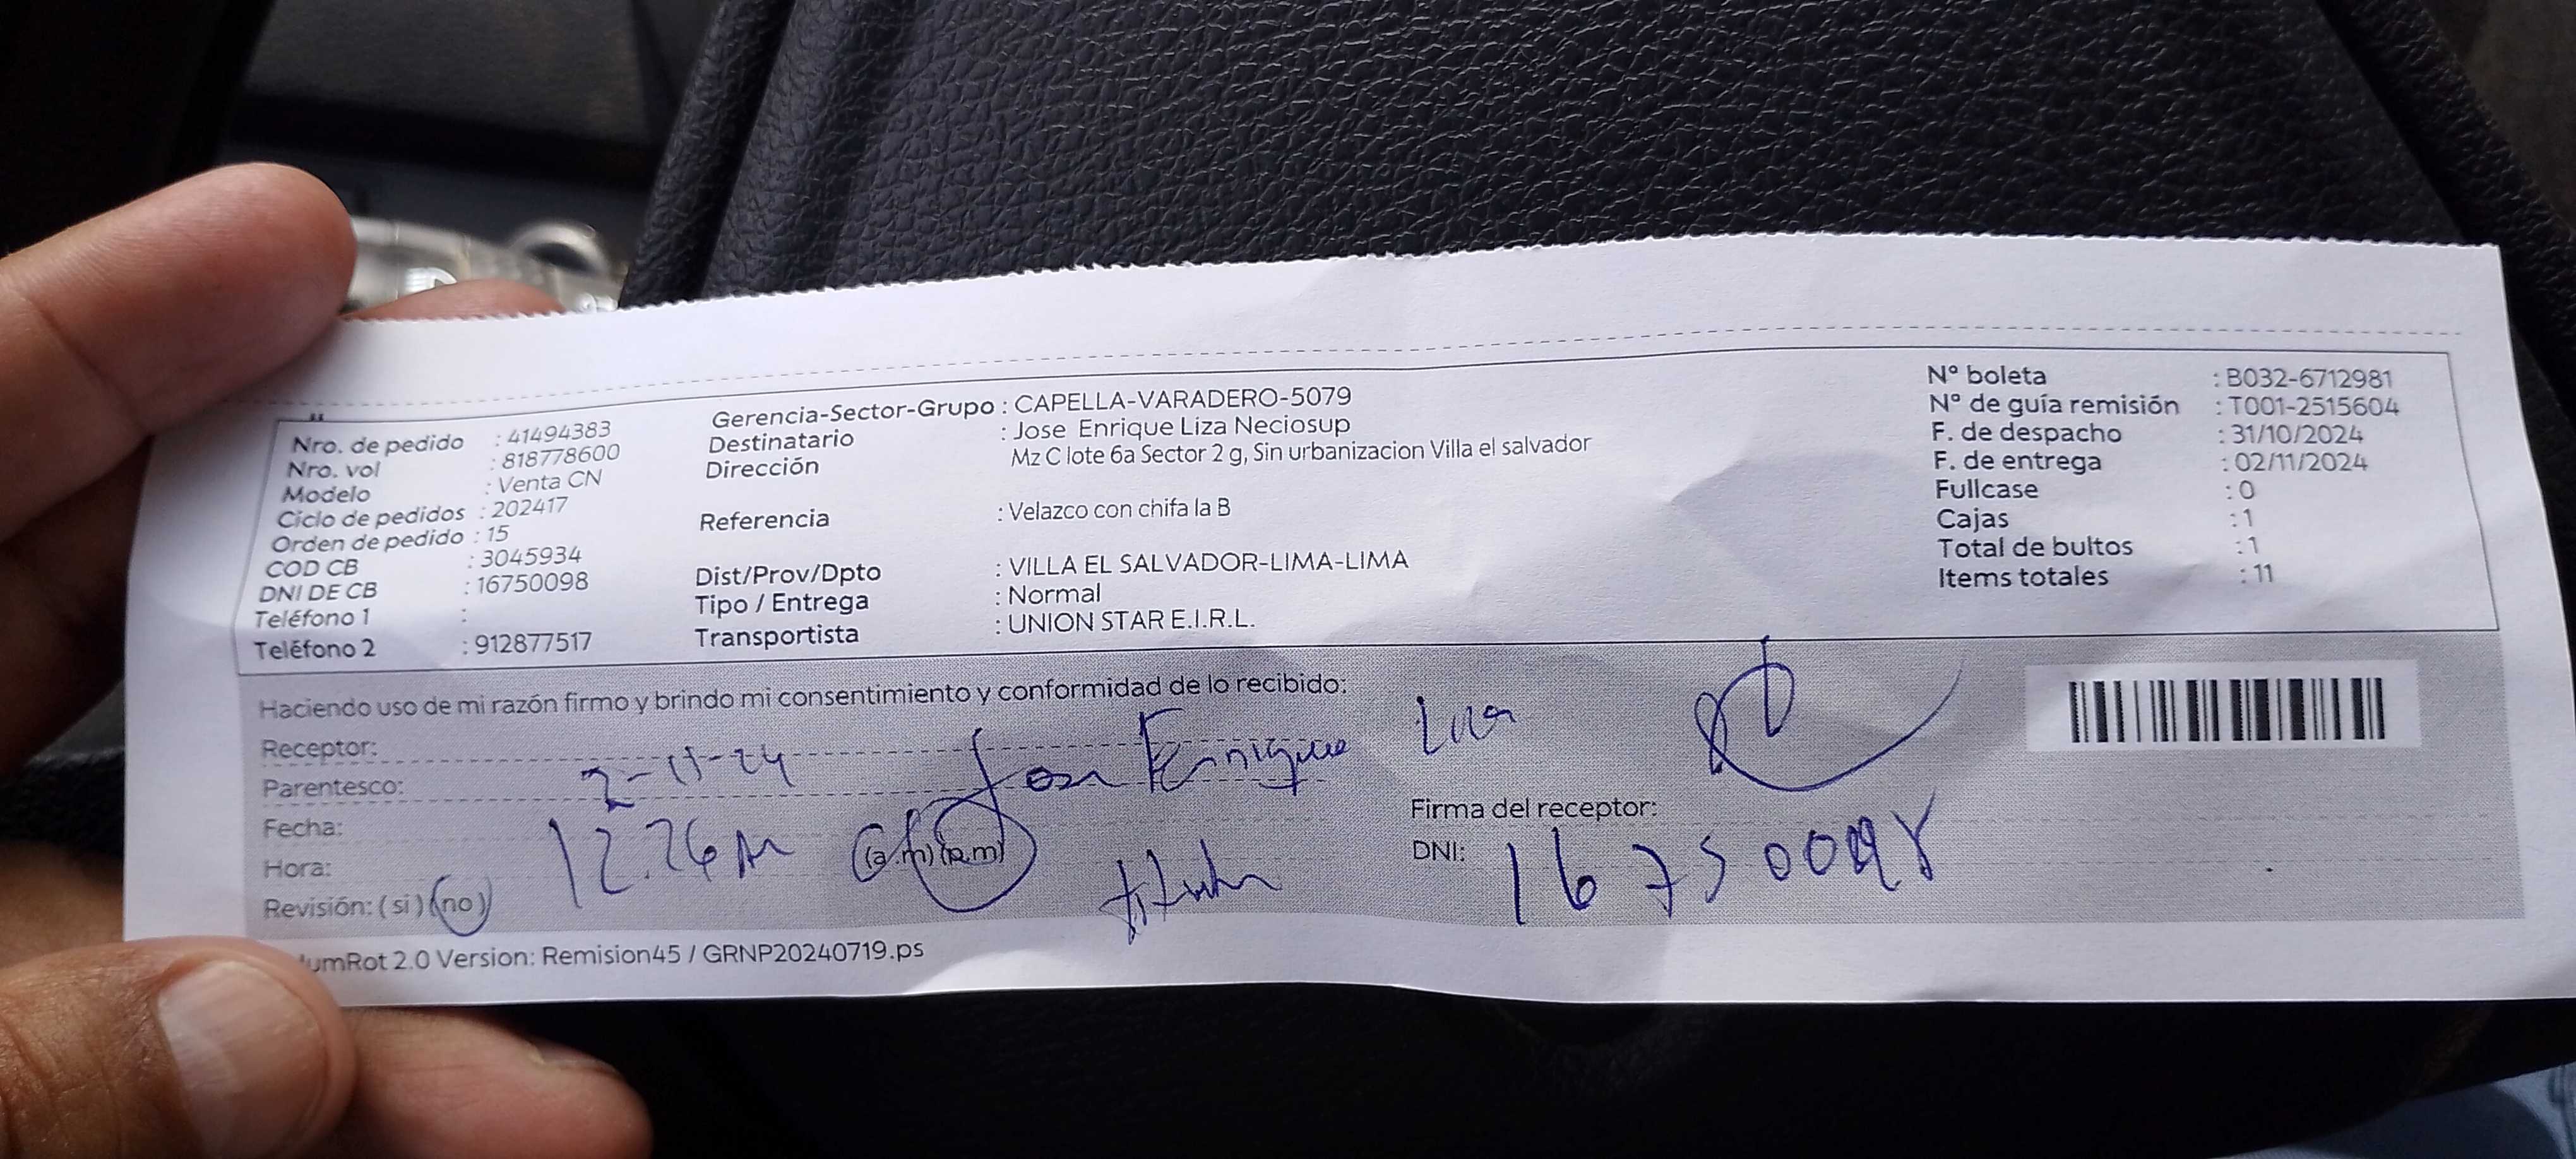 Nro. de pedido : 41494383
Nro. vol : 818778600
Modelo : Venta CN
Ciclo de pedidos : 202417
Orden de pedido : 15
COD CB : 3045934
DNI DE CB : 16750098
Teléfono 1 :
Teléfono 2 : 912877517
Gerencia-Sector-Grupo : CAPELLA-VARADERO-5079
Destinatario : Jose Enrique Liza Neciosup
Dirección Mz C lote 6a Sector 2 g, Sin urbanizacion Villa el salvador
Referencia : Velazco con chifa la B
Dist/Prov/Dpto : VILLA EL SALVADOR-LIMA-LIMA
Tipo / Entrega : Normal
Transportista : UNION STAR E.I.R.L.
N° boleta : B032-6712981
N° de guía remisión : T001-2515604
F. de despacho : 31/10/2024
F. de entrega : 02/11/2024
Fullcase : 0
Cajas : 1
Total de bultos : 1
Items totales : 11
Haciendo uso de mi razón firmo y brindo mi consentimiento y conformidad de lo recibido:
Receptor: Jose Enrique Liza
Parentesco: titular
Fecha: 2-11-24
Hora: 12.26 (a.m) (p.m)
Revisión: ( si ) ( no )
Firma del receptor:
DNI: 16750098
umRot 2.0 Version: Remision45 / GRNP20240719.ps